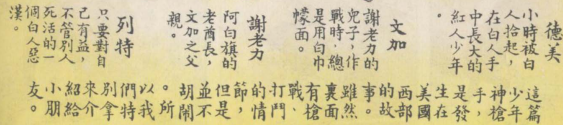 德美
小時被白
人拾起，
在白人手
中長大的
紅人少年。
文加
謝老力的
兒子，作
戰時，總
是用白巾
幪面。
謝老力
阿白旗的
老酋長，
文加之父
親。
列特
只要對自
己有益，
不管別人
死活的一
個白人惡
漢。
這篇
少年
神槍
手，
是發
生在
美國
西部
的故
事。
雖然
裏面
有槍
戰、
打鬥
的情
節，
但是
並不
胡鬧
。所
以我
們特
別拿
來介
紹給
小朋
友。